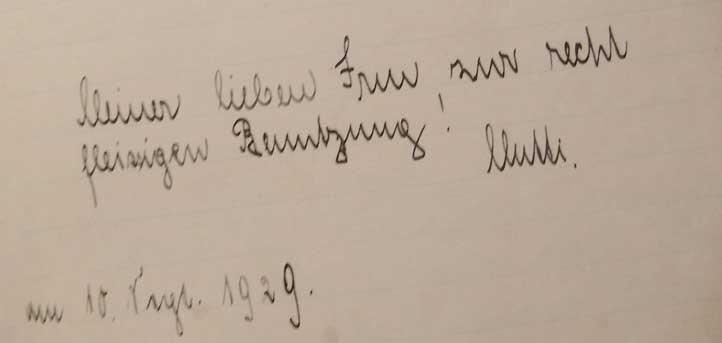 Meiner lieben zur recht
fleißigen Benutzung!
Mutti.
am 10. Sept. 1929.